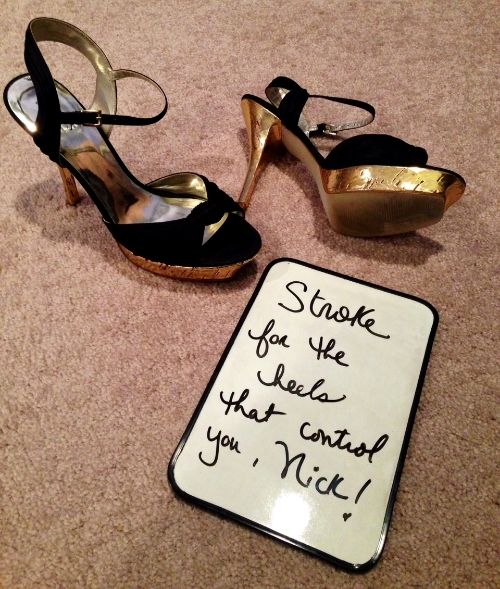 Stroke
for the
heels
that control
you, Nick!